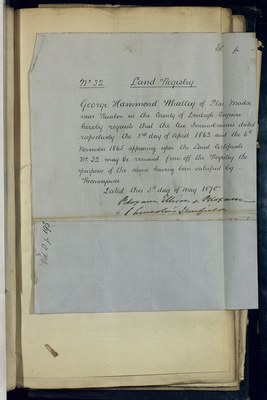 No. 32. Land Registry
George Hammond Whalley of Plas Madoc
near Ruabon in the County of Denbigh Esquire
hereby request that the two Incumbrances dated
respectively the 2nd day of April 1863 and the 6th
November 1865 appearing upon the Land Certificate
No. 32 may be removed from off the Registry the
purpose of the same having been satisfied by
Dated this 5th day of May 1870
Lincoln's Inn Fields